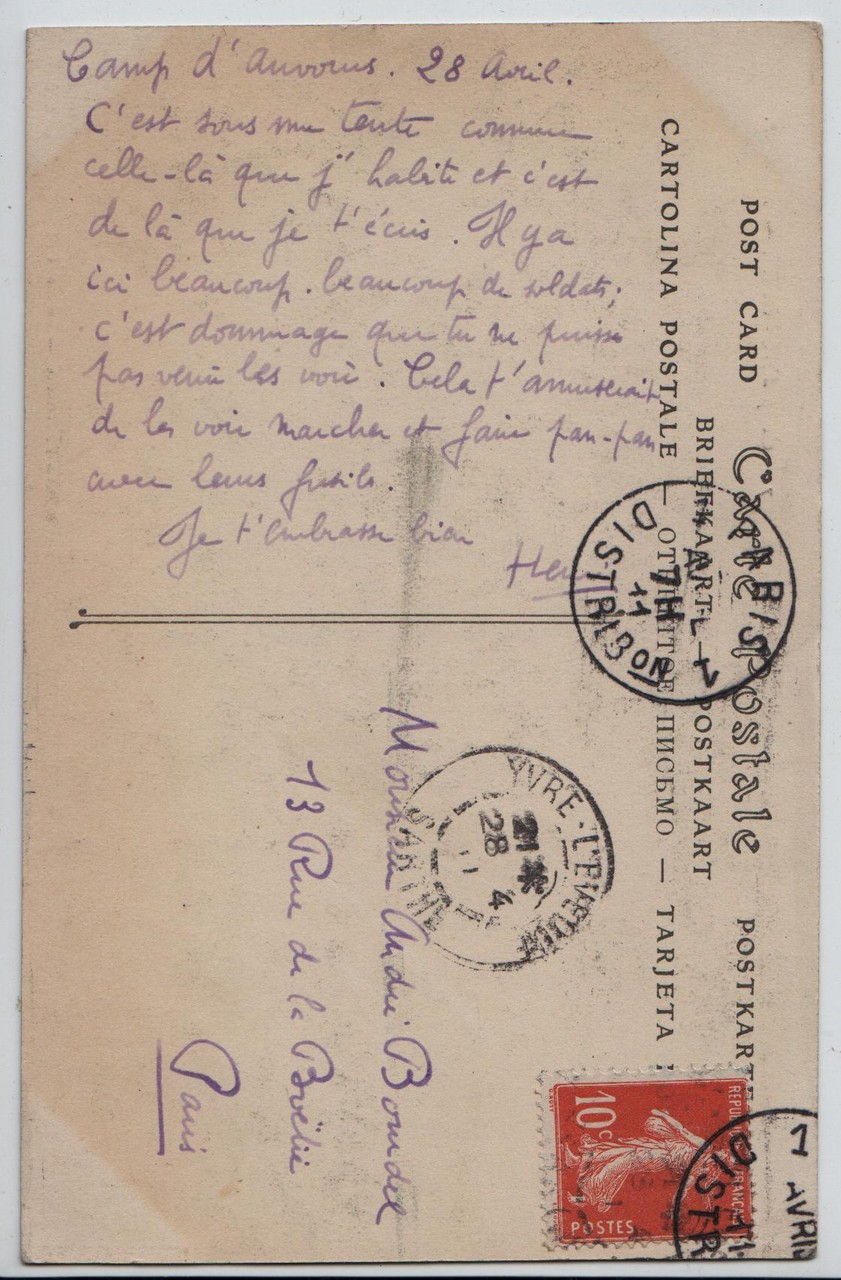 Camp d'Auvours. 28 Avril.
C'est sous une tente comme
celle-là que j'habite et c'est
de là que je t'écris. Il y a
ici beaucoup. beaucoup de soldats;
c'est dommage que tu ne puisse
pas venir les voir. Cela t'amuserait
de les voir marcher et faire pan-pan
avec leurs fusils.
Je t'embrasse bien
POST CARD Carte Postale POSTKARTE
BRIEFKAART — POSTKAART
CARTOLINA POSTALE — ПИСЬМО — TARJETA
DISTRIBON
7H
11
YVRE-L'EVEQUE
SARTHE
21 *
28 4
Monsieur André Bourdel
13 Rue de la Boëtie
Paris
10c
POSTES
7 AVRIL
DISTR
11